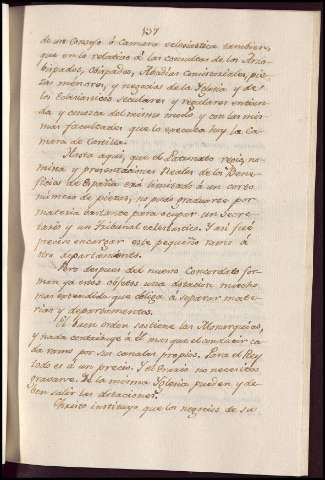 137
de un Consejo ó Camara eclesiastica tambien,
que en lo relativo á las consultas de los Arzo-
bispados, Obispados, Abadías consistoriales, pie-
zas menores, y negocios de la Yglesia y de
los Eclesiasticos seculares y regulares entien-
da y conozca del mismo modo y con las mis-
mas facultades que lo executa hoy la Ca-
mara de Castilla.
Hasta aqui, que el Patronato regio, no-
mina y presentaciones Reales de los Bene-
ficios de España era limitado á un corto
numero de piezas, no pudo graduarse por
materia bastante para ocupar un Secre-
tario y un Tribunal eclesiastico. Y asi fué
preciso encargar este pequeño ramo á
otro departamento.
Pero despues del nuevo Concordato for-
man ya estos objetos una dotacion mucho
mas extendida que obliga á separar mate-
rias y departamentos.
El buen orden sostiene las Monarquias,
y nada contribuye á él mas que el conducir ca-
da ramo por sus canales propios. Para el Rey
todo es á un precio. Y el Erario no necesita
gravarse. De la misma Yglesia pueden y de-
ben salir las dotaciones.
Christo instituyo que los negocios de su